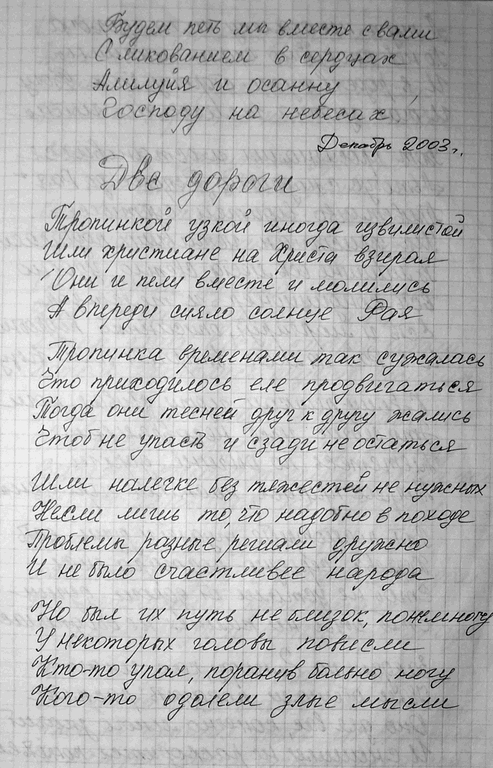 Будем петь мы вместе с вами
С ликованием в сердцах
Алилуйя и осанну
Господу на небесах
Декабрь 2003 г.
Две дороги
Тропинкой узкой иногда извилистой
Шли христиане на Христа взирая
Они и пели вместе и молились
А впереди сияло солнце Рая
Тропинка временами так сужалась
Что приходилось еле продвигаться
Тогда они тесней друг к другу жались
Чтоб не упасть и сзади не остаться
Шли налегке без тяжестей не нужных
Несли лишь то, что надобно в походе
Проблемы разные решали дружно
И не было счастливее народа
Но был их путь не близок, понемногу
У некоторых головы повисли
Кто-то упал, поранув больно ногу
Кого-то одолели злые мысли